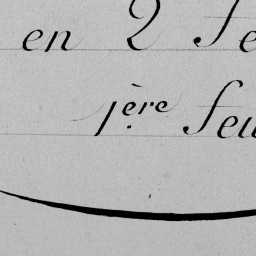 en 2 Fe
1ère feu